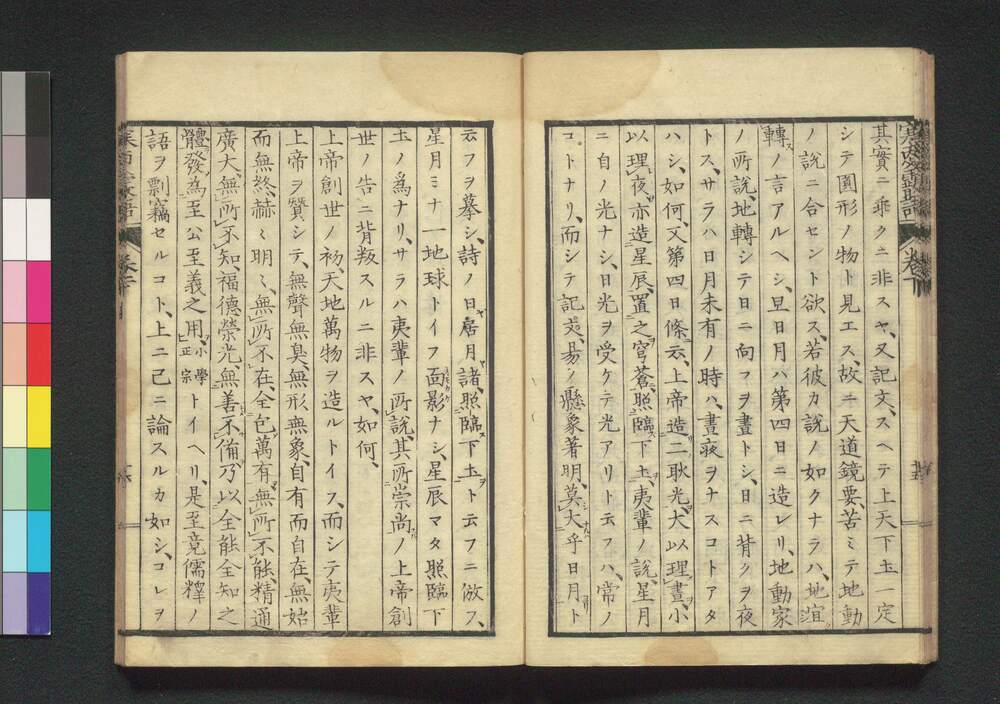 其實ニ乖クニ非スヤ、又記文、スヘテ上天下土一定
シテ圓形ノ物ト見エス、故ニ天道鏡要、苦ミテ地動
ノ説ニ合セント欲ス、若彼カ説ノ如クナラハ、地渲
轉スノ言アルヘシ、且日月ハ第四日ニ造レリ、地動家
ノ所説、地轉シテ日ニ向フヲ晝トシ、日ニ背クヲ夜
トス、サラハ日月未有ノ時ハ、晝夜ヲナスコトアタ
ハシ、如何、又第四日ノ條ニ云、上帝造二耿光、大以理晝、小
以理夜、亦造星辰、置之穹蒼、照臨下土、夷輩ノ説、星月
ニ自ノ光ナシ、日光ヲ受ケテ光アリト云フハ、常ノ
コトナリ、而シテ記文、易ノ懸象著明、莫大乎日月ト
云フヲ摹シ、詩ノ日居月諸、照臨下土ト云フニ倣ス、
星月ミナ一地球トイフ面影ナシ、星辰マタ照臨下
土ノ爲ナリ、サラハ夷輩ノ所說、其所崇尚ノ上帝創
世ノ告ニ背叛スルニ非スヤ、如何、
上帝創世ノ初、天地萬物ヲ造ルトイフ、而シテ夷輩
上帝ヲ贊シテ、無聲無臭、無形無象、自有而自在、無始
而無終、赫々明々、無所不在、全包萬有、無所不能、精通
廣大、無所不知、福德榮光、無善不備、乃以全能全知之
體、發爲至公至義之用、小學正宗トイヘリ、是至竟儒釋ノ
語ヲ剽竊セルコト、上ニ己ニ論スルカ如シ、コレヲ